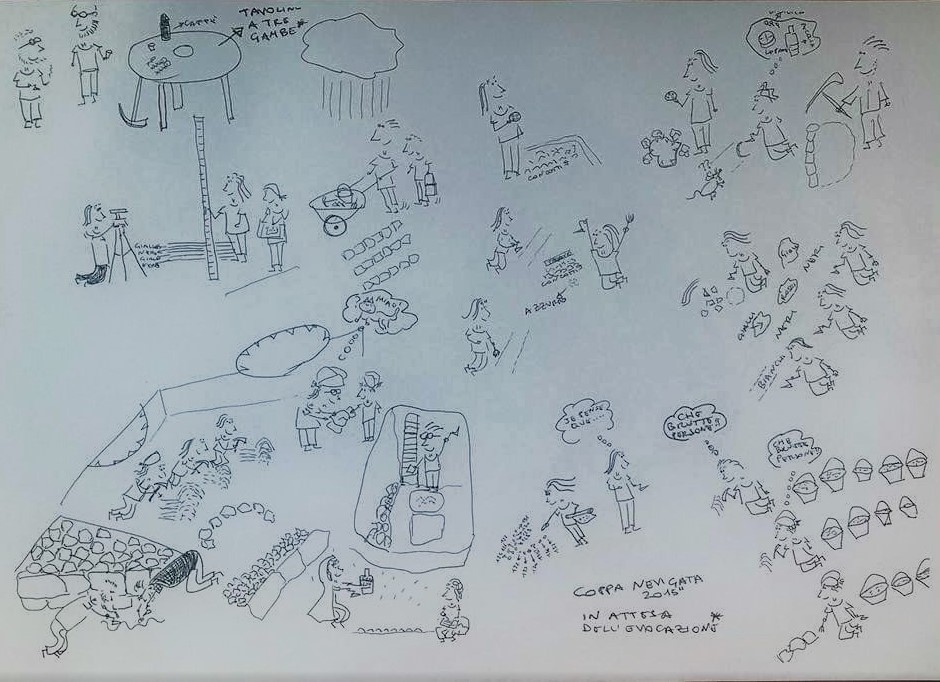 CAFFÈ
TAVOLINO
A TRE
GAMBE *
MIAO!
CONCOTTI
CONCOTTO
AZZURRO
NERI
GIALLI
NERI
ROSSI
BIANCHI
SE SENZE
QUE....
CHE
BRUTTE
PERSONE!!
CHE
BRUTTE
PERSONE!!
COPPA NEVIGATA
2015"
IN ATTESA *
DELL'EVOCAZIONE